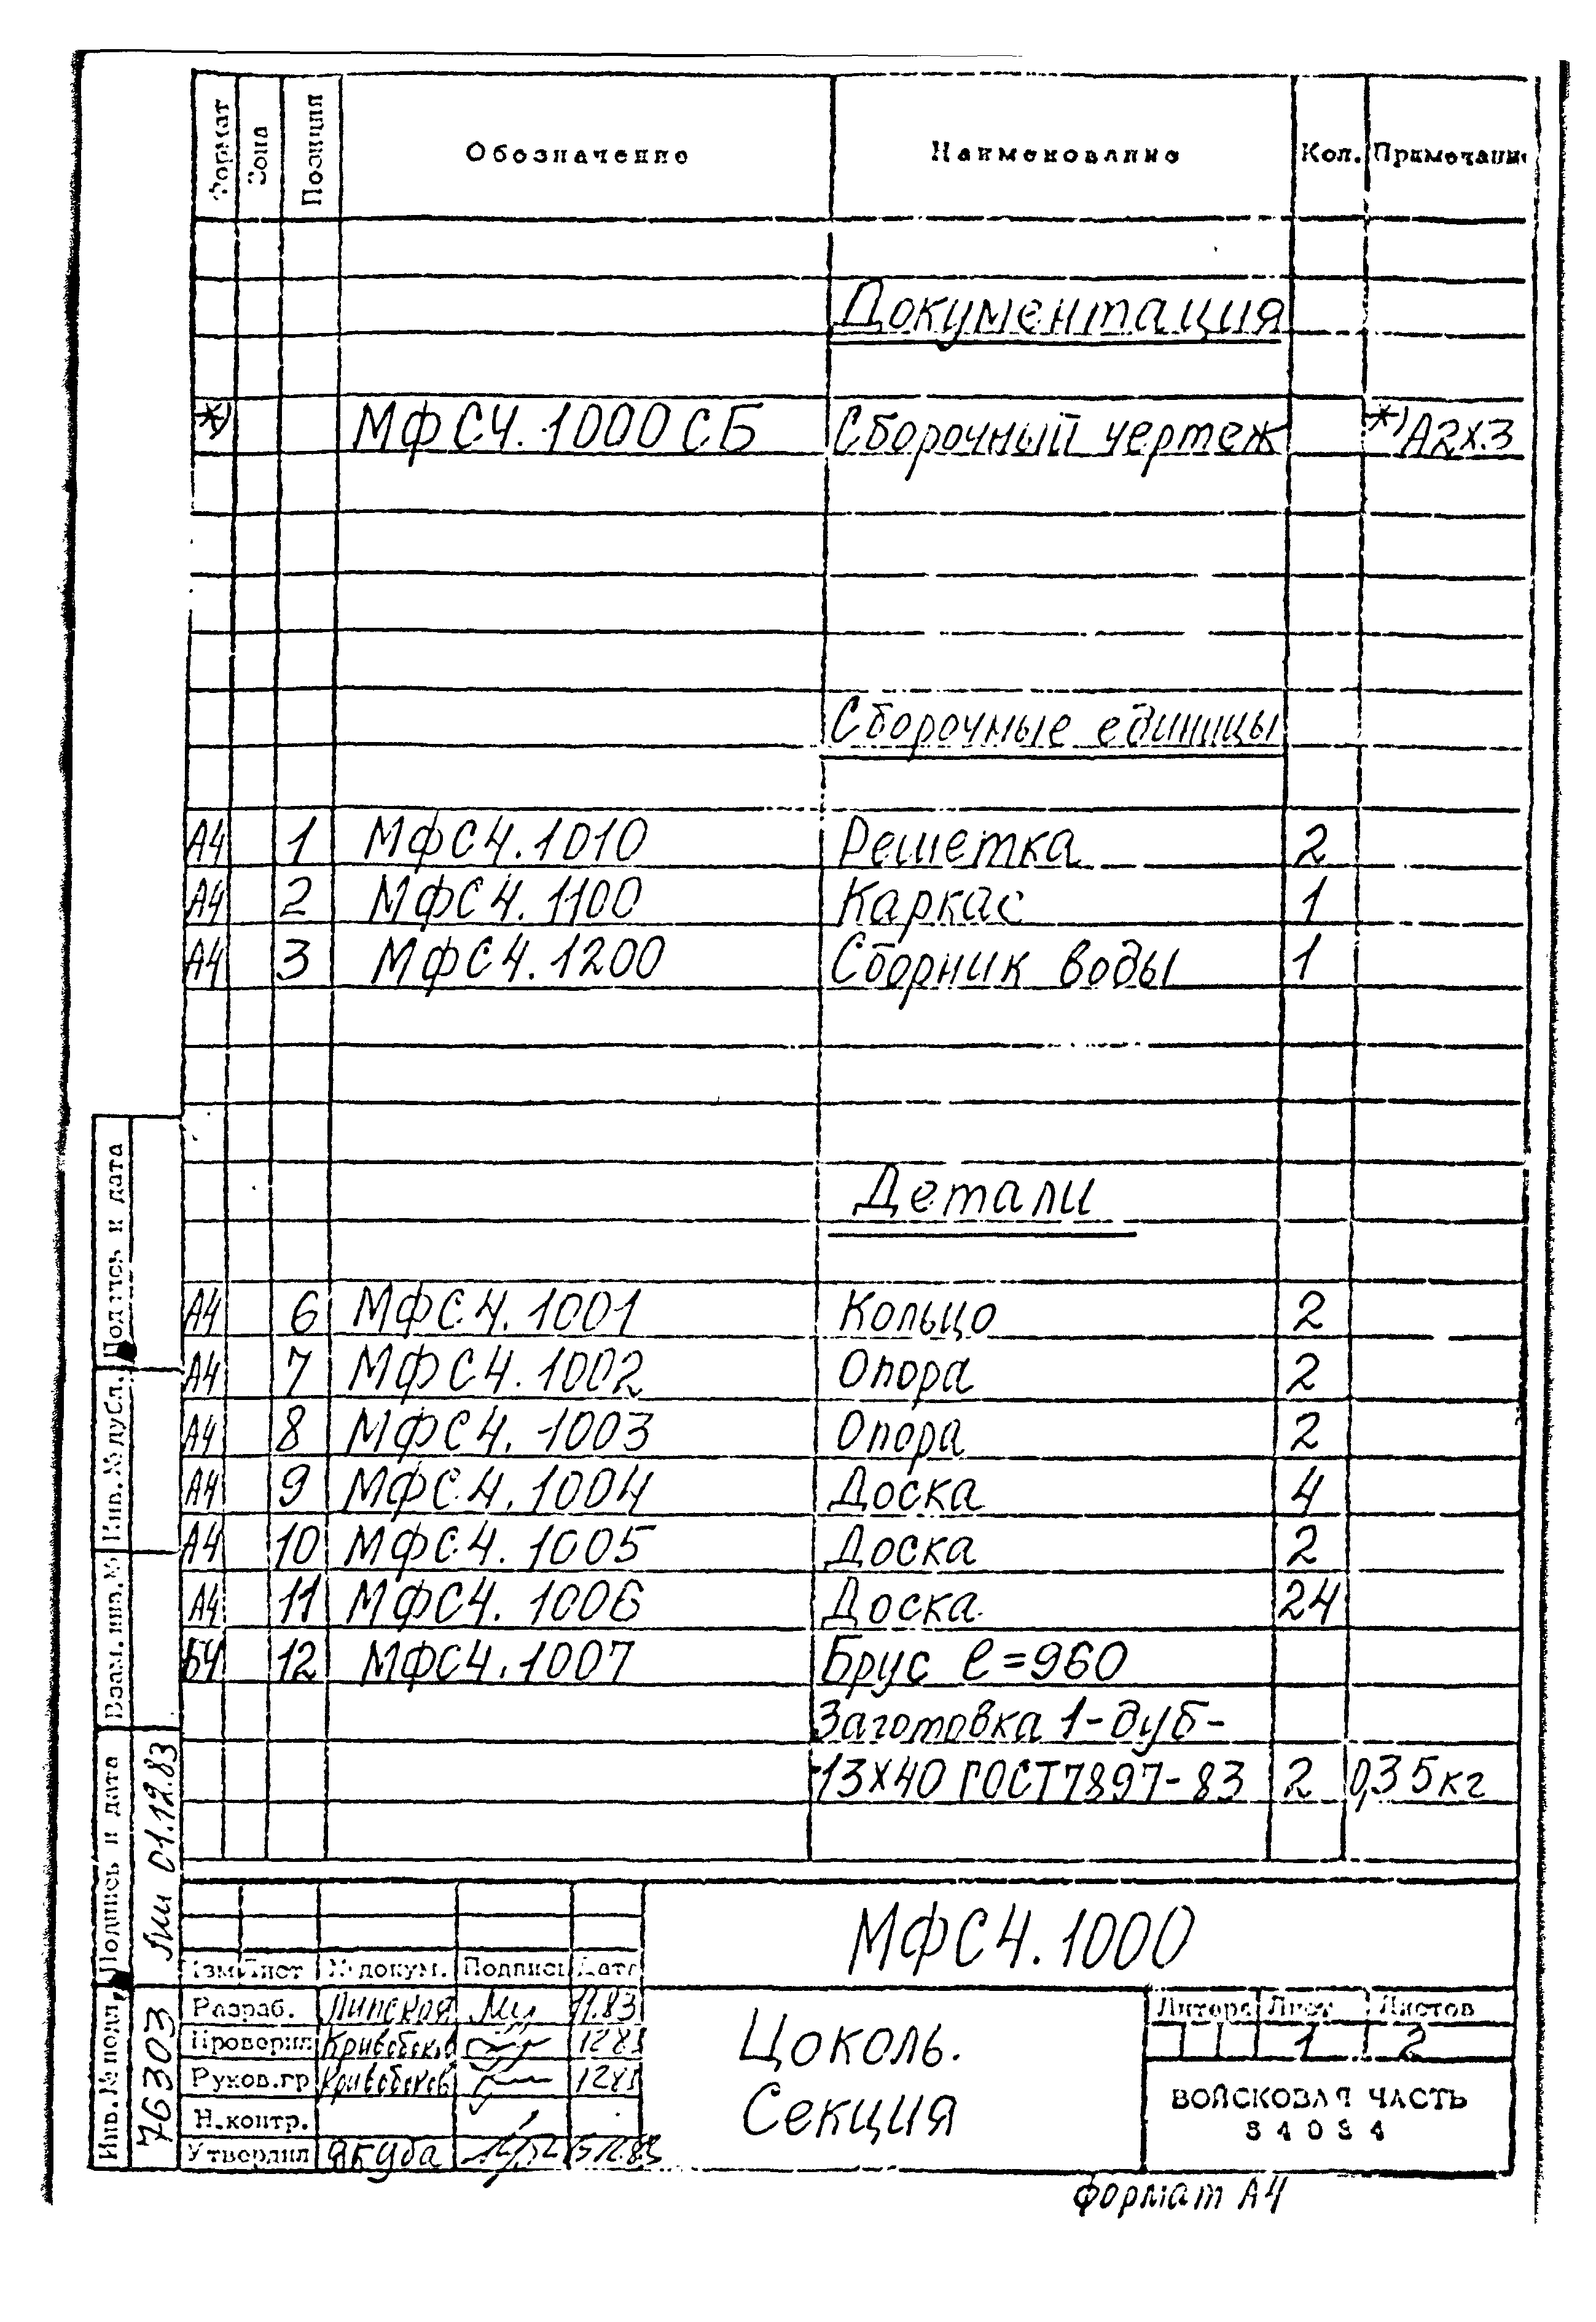 Формат Зона Позиция Обозначение Наименование Кол. Примечание
Документация
*) МФС4.1000СБ Сборочный чертеж *) А2х3
Сборочные единицы
А4 1 МФС4.1010 Решетка 2
А4 2 МФС4.1100 Каркас 1
А4 3 МФС4.1200 Сборник воды 1
Детали
А4 6 МФС4.1001 Кольцо 2
А4 7 МФС4.1002 Опора 2
А4 8 МФС4.1003 Опора 2
А4 9 МФС4.1004 Доска 4
А4 10 МФС4.1005 Доска 2
А4 11 МФС4.1006 Доска 24
БЧ 12 МФС4.1007 Брус ℓ=960
Заготовка 1-дуб-
13х40 ГОСТ7897-83 2 0,35кг
Подпись и дата
Инв. № дубл.
Взам. инв. №
Подпись и дата 01.12.83
Инв. № подл. 76303
МФС4.1000
Изм Лист № докум. Подпись Дата
Разраб. Липская 11.83
Проверил Кривобоков 12.83
Руков.гр Кривобоков 12.83
Н.контр.
Утвердил Якуба
Цоколь.
Секция
Литера Лист Листов
1 2
ВОЙСКОВАЯ ЧАСТЬ
54034
Формат А4